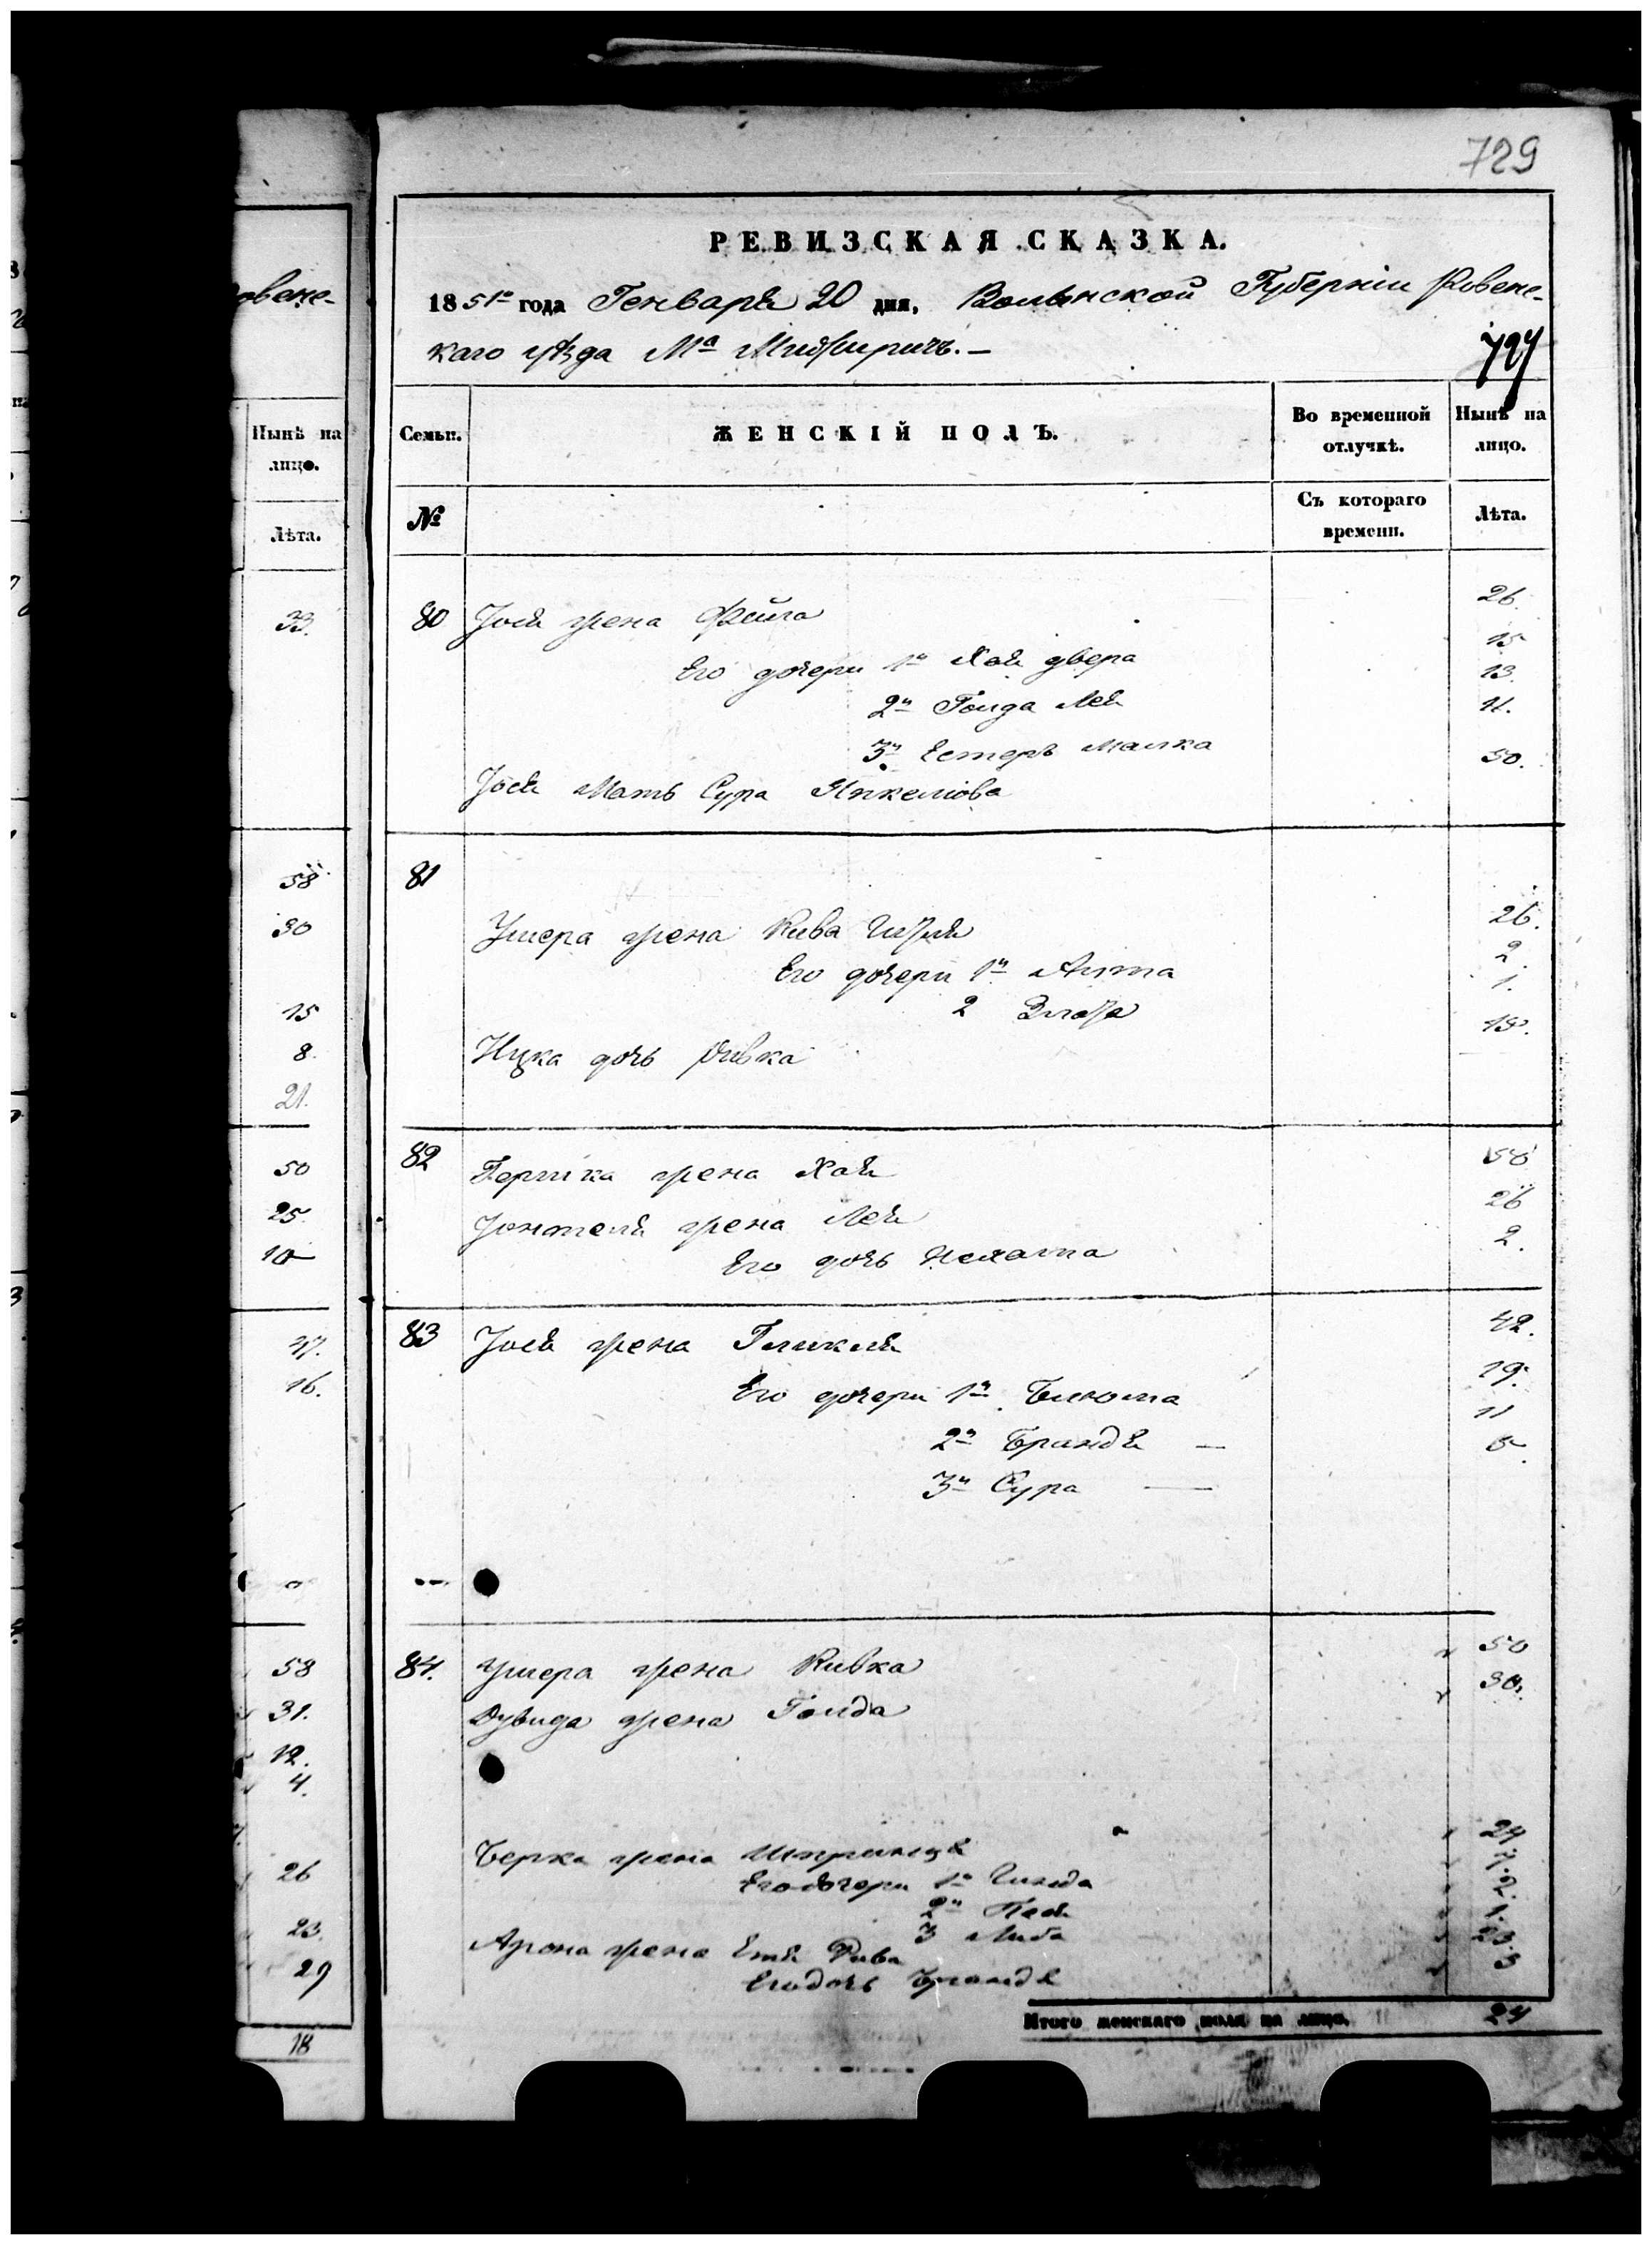 729
овенс-
РЕВИЗСКАЯ СКАЗКА.
1851го года Генваря 20 дня, Волынской Губерніи Ровенс-
каго уѣзда Ма Мизжиричъ.—
727
Нынѣ на лицо.
Лѣта.
Семьи. ЖЕНСКІЙ ПОЛЪ. Во временной отлучкѣ. Нынѣ на лицо.
№ Съ котораго времени. Лѣта.
33.
80 Іося жена Фейга 26.
Его дочери 1я Хая двера 15
2я Голда Лея 13.
3я Естеръ Малка 11.
Іося Мать Сура Янкелiова 50.
58
30
15
8.
21.
81
Ушера жена Рива Гизля 26.
Его дочери 1я Алта 2.
2 Злата 1.
Ицка дочь Ривка
50
25.
82 Гершка жена Хая 58
Іонтеля жена Лея 26
Его дочь 2.
47.
16.
83 Іося жена Гликля 42.
Его дочери 1я Блюма 19.
2я Брандя — 11
3я Сура —
58
31.
12.
4.
26
23.
29
18
84. Ушера жена Ривка 50
Дувида жена Голда 30.
Берка жена Шпринця 24
Его дочери 1я Гинда 7.
2я Песя 2.
3 Либа 1.
Арона жена Етя Рива 23.
Его дочь Брандя 3
Итого женскаго пола на лицо, 24